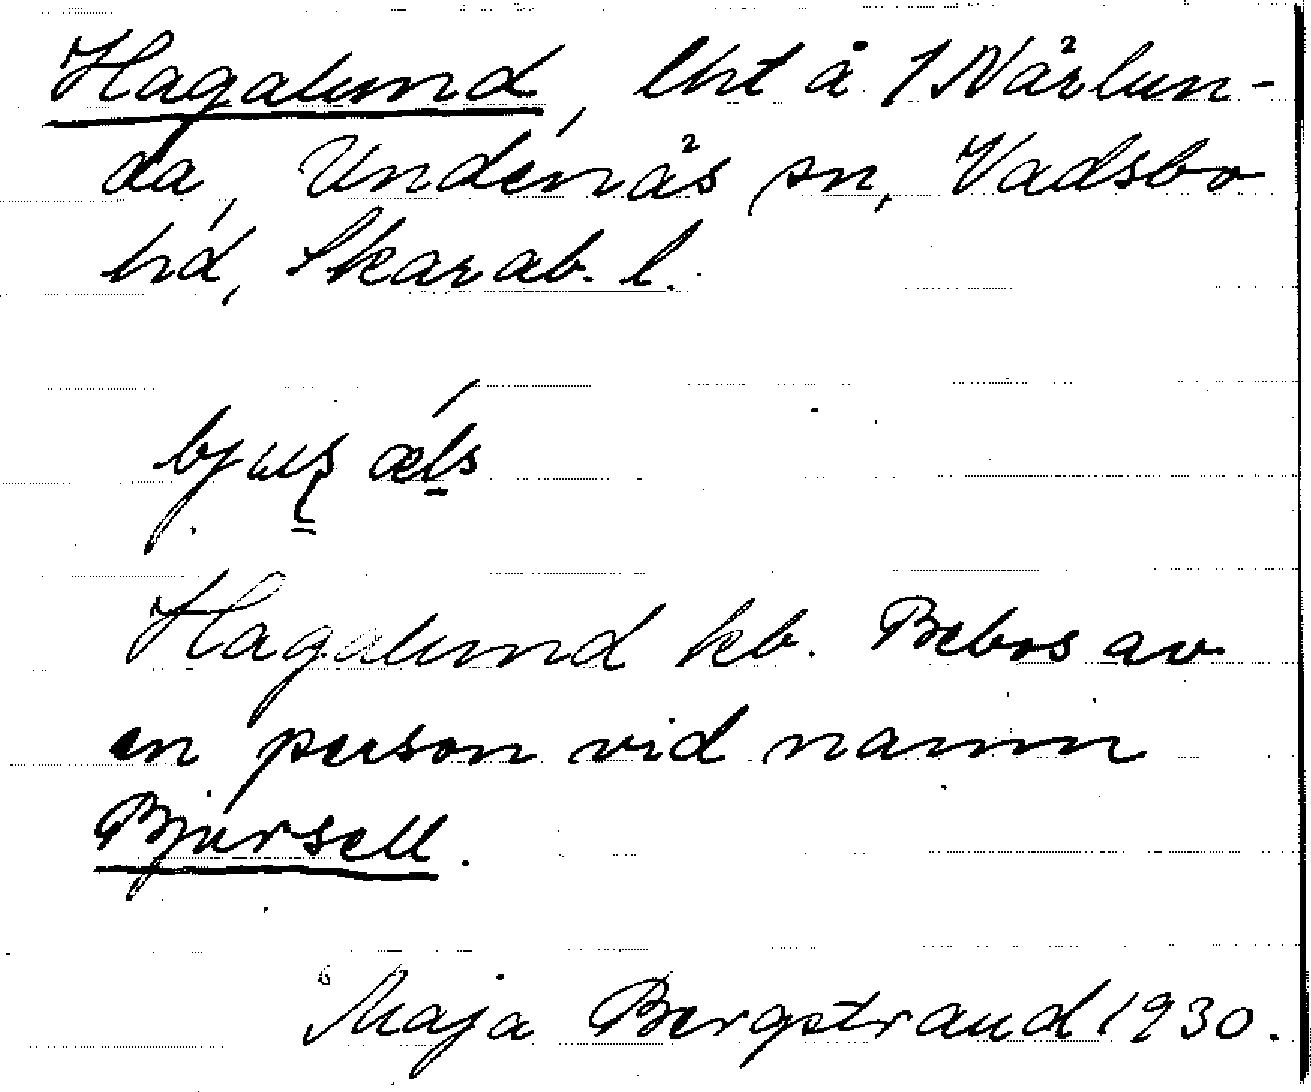 Hagalund, lht å 1 Nårlun-
da, Undenäs sn, Vadsbo
hd, Skarab. l.
Hagalund kb. Bebos av
en person vid namn
Bjursell.
Maja Bergstrand 1930.